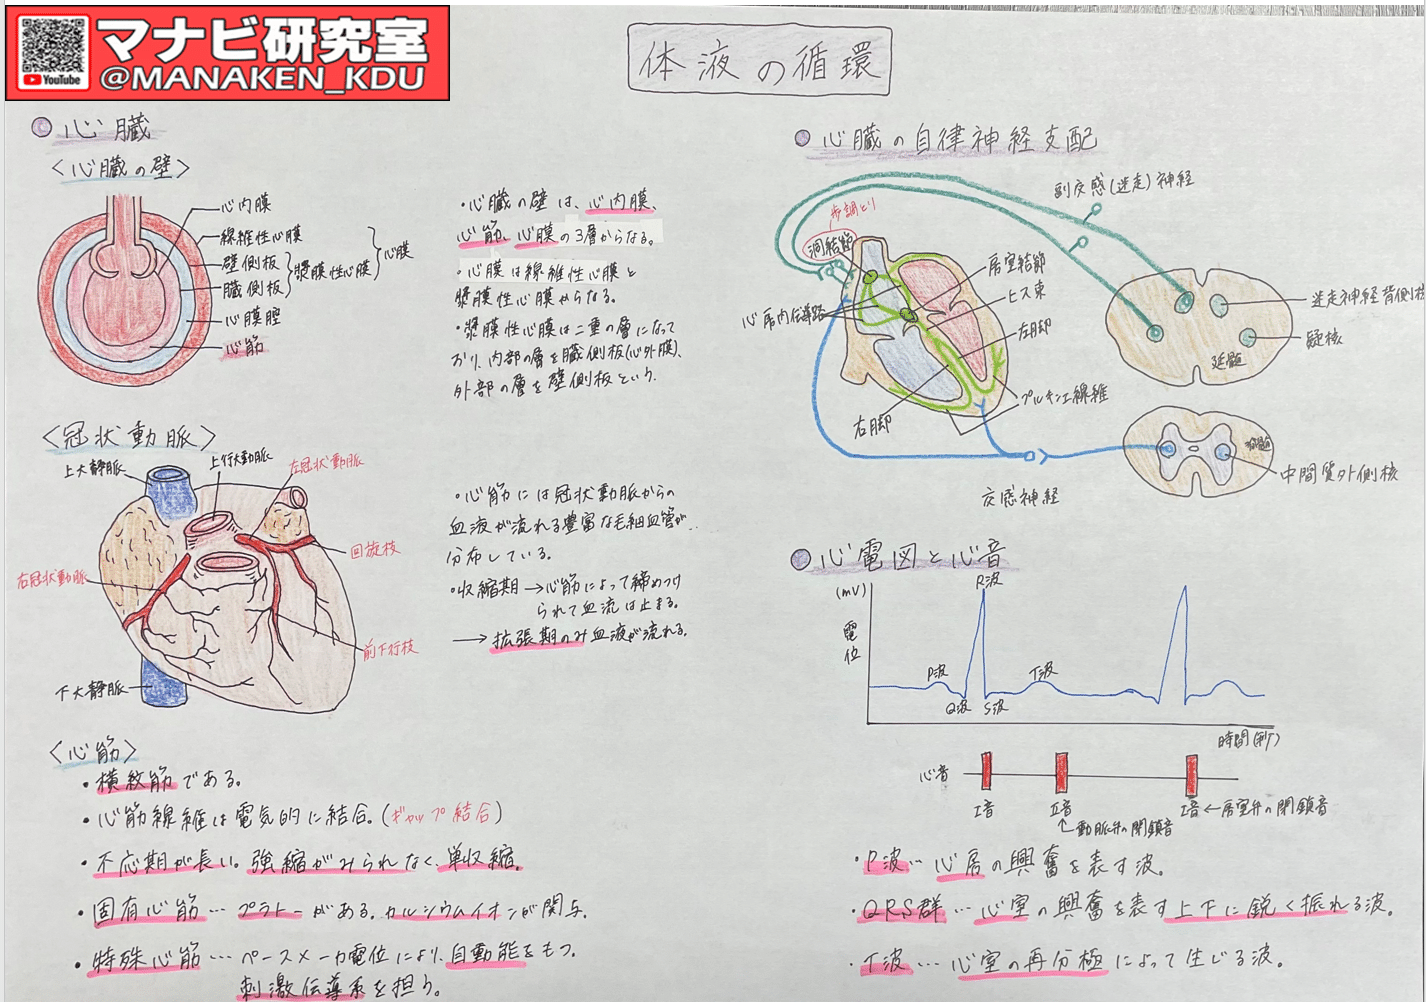 マナビ研究室
@MANAKEN_KDU
YouTube
体液の循環
心臓
<心臓の壁>
心内膜
線維性心膜
壁側板
臓側板
漿膜性心膜
心膜
心膜腔
心筋
・心臓の壁は、心内膜、
心筋、心膜の3層からなる。
・心膜は線維性心膜と
漿膜性心膜からなる。
・漿膜性心膜は二重の層になって
おり、内部の層を臓側板(心外膜)、
外部の層を壁側板という。
<冠状動脈>
上大静脈
上行大動脈
左冠状動脈
回旋枝
右冠状動脈
前下行枝
下大静脈
・心筋には冠状動脈からの
血液が流れる豊富な毛細血管が
分布している。
・収縮期→心筋によって締めつけ
られて血流は止まる。
→拡張期のみ血液が流れる。
<心筋>
・横紋筋である。
・心筋線維は電気的に結合。(ギャップ結合)
・不応期が長い。強縮がみられなく、単収縮。
・固有心筋…プラトーがある。カルシウムイオンが関与。
・特殊心筋…ペースメーカ電位により、自動能をもつ。
刺激伝導系を担う。
心臓の自律神経支配
副交感(迷走)神経
歩調とり
洞結節
房室結節
ヒス束
心房内伝導路
左脚
右脚
プルキンエ線維
迷走神経背側核
疑核
延髄
脊髄
中間質外側核
交感神経
心電図と心音
(mV)
電位
R波
P波
Q波
S波
T波
時間(秒)
心音
I音
II音
I音←房室弁の閉鎖音
↑動脈弁の閉鎖音
・P波…心房の興奮を表す波。
・QRS群…心室の興奮を表す上下に鋭く振れる波。
・T波…心室の再分極によって生じる波。